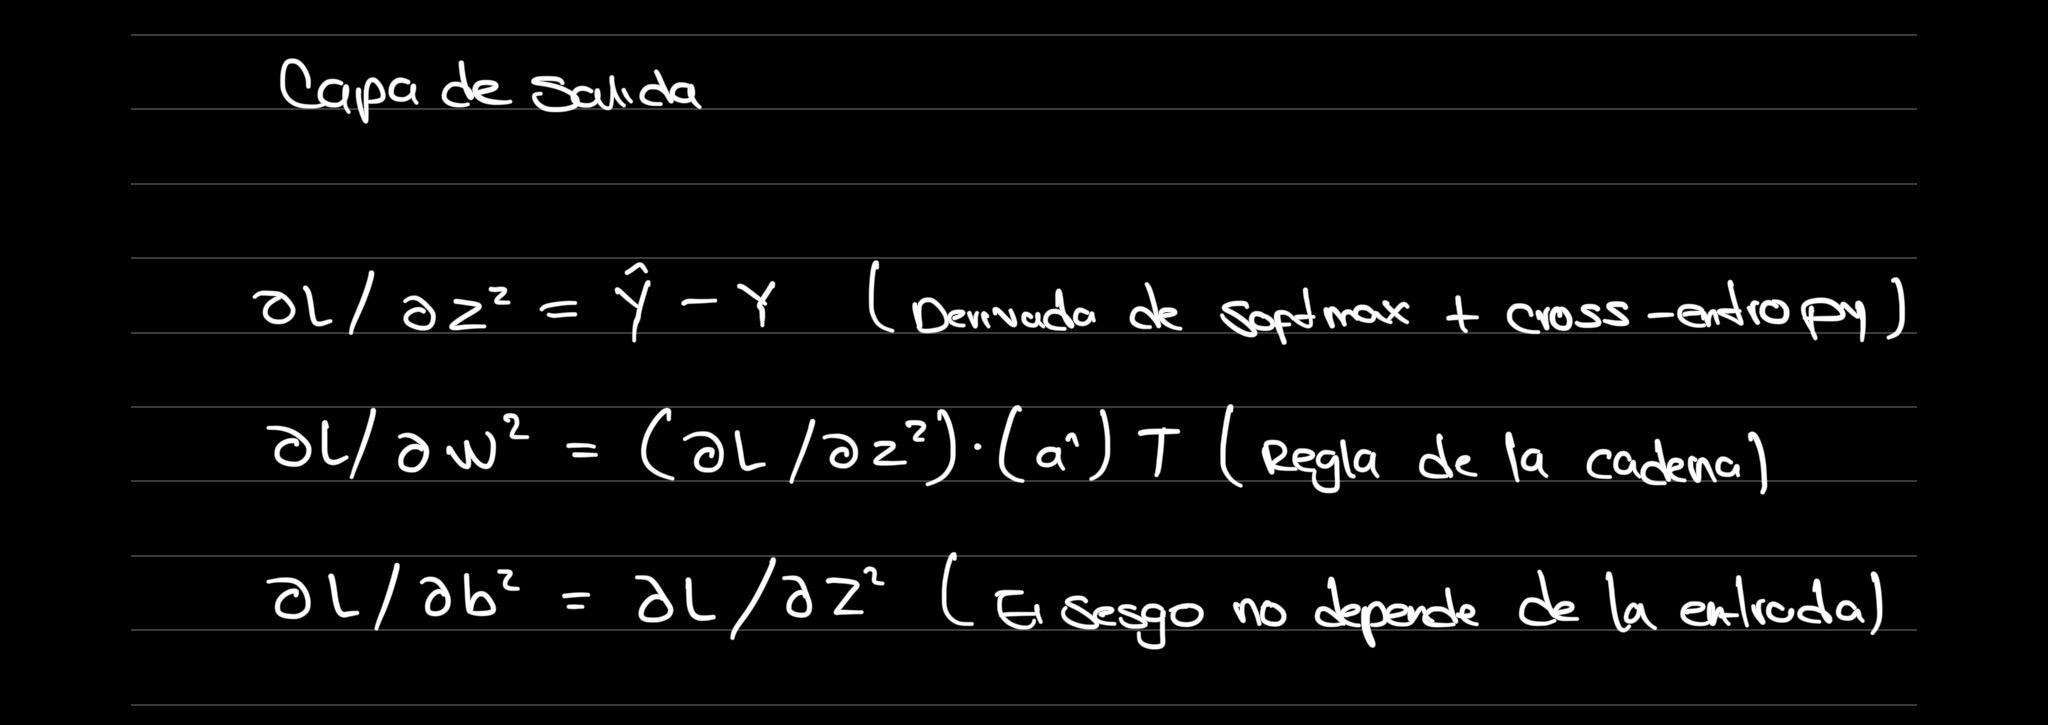 Capa de salida
∂L/∂z² = Ŷ - Y (Derivada de softmax + cross-entropy)
∂L/∂w² = (∂L/∂z²)·(a¹)T (Regla de la cadena)
∂L/∂b² = ∂L/∂z² (El sesgo no depende de la entrada)